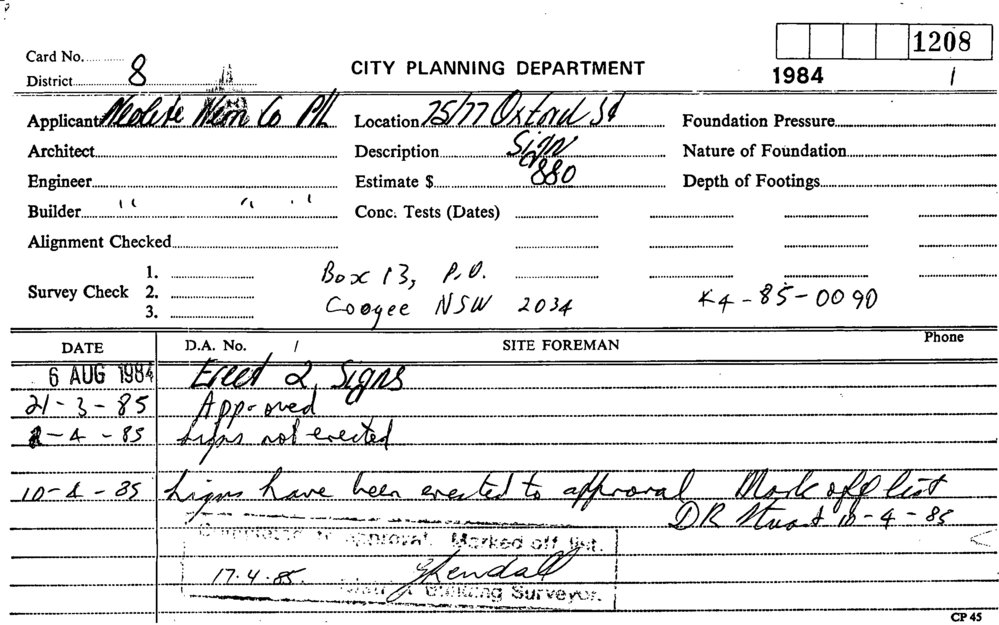 1208
Card No. 8 CITY PLANNING DEPARTMENT 1984 1
District
Applicant Neolite Neon Co P/L Location 75/77 Oxford St Foundation Pressure
Architect Description Sign Nature of Foundation
Engineer Estimate $ 880 Depth of Footings
Builder " " " Conc. Tests (Dates)
Alignment Checked
1. Box 13, P.O.
Survey Check 2. Coogee NSW 2034 K4-85-0090
3.
DATE D.A. No. / SITE FOREMAN Phone
6 AUG 1984 Erect 2 Signs
21-3-85 Approved
-4-85 Signs not erected
10-4-85 Signs have been erected to approval Mark off list
DR Stuart 10-4-85
to approval. Marked off list.
17.4.85. Kendall
Building Surveyor.
CP 45